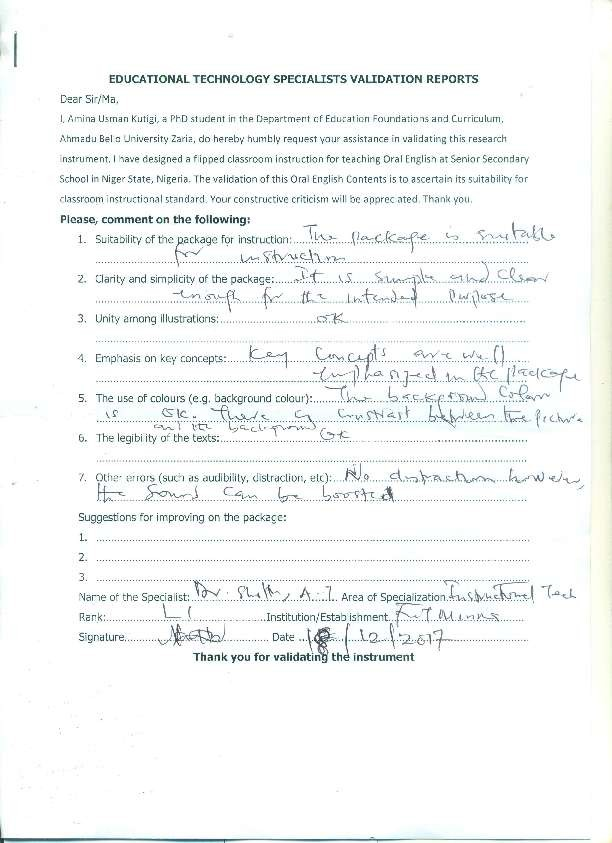 EDUCATIONAL TECHNOLOGY SPECIALISTS VALIDATION REPORTS
Dear Sir/Ma,
I, Amina Usman Kutigi, a PhD student in the Department of Education Foundations and Curriculum,
Ahmadu Bello University Zaria, do hereby humbly request your assistance in validating this research
instrument. I have designed a flipped classroom instruction for teaching Oral English at Senior Secondary
School in Niger State, Nigeria. The validation of this Oral English Contents is to ascertain its suitability for
classroom instructional standard. Your constructive criticism will be appreciated. Thank you.
Please, comment on the following:
1. Suitability of the package for instruction: The package is suitable
for instruction
2. Clarity and simplicity of the package: It is simple and clear
enough for the intended purpose
3. Unity among illustrations: OK
4. Emphasis on key concepts: Key concepts are well
emphasized in the package
5. The use of colours (e.g. background colour): The background colour
is OK. There is contrast between the picture
and the background
6. The legibility of the texts: OK
7. Other errors (such as audibility, distraction, etc): No distraction however,
the sound can be boosted
Suggestions for improving on the package:
1.
2.
3.
Name of the Specialist: Dr. A. I. Area of Specialization Instructional Tech
Rank: L I Institution/Establishment. F.U.T Minna
Signature Date 18/12/2017
Thank you for validating the instrument